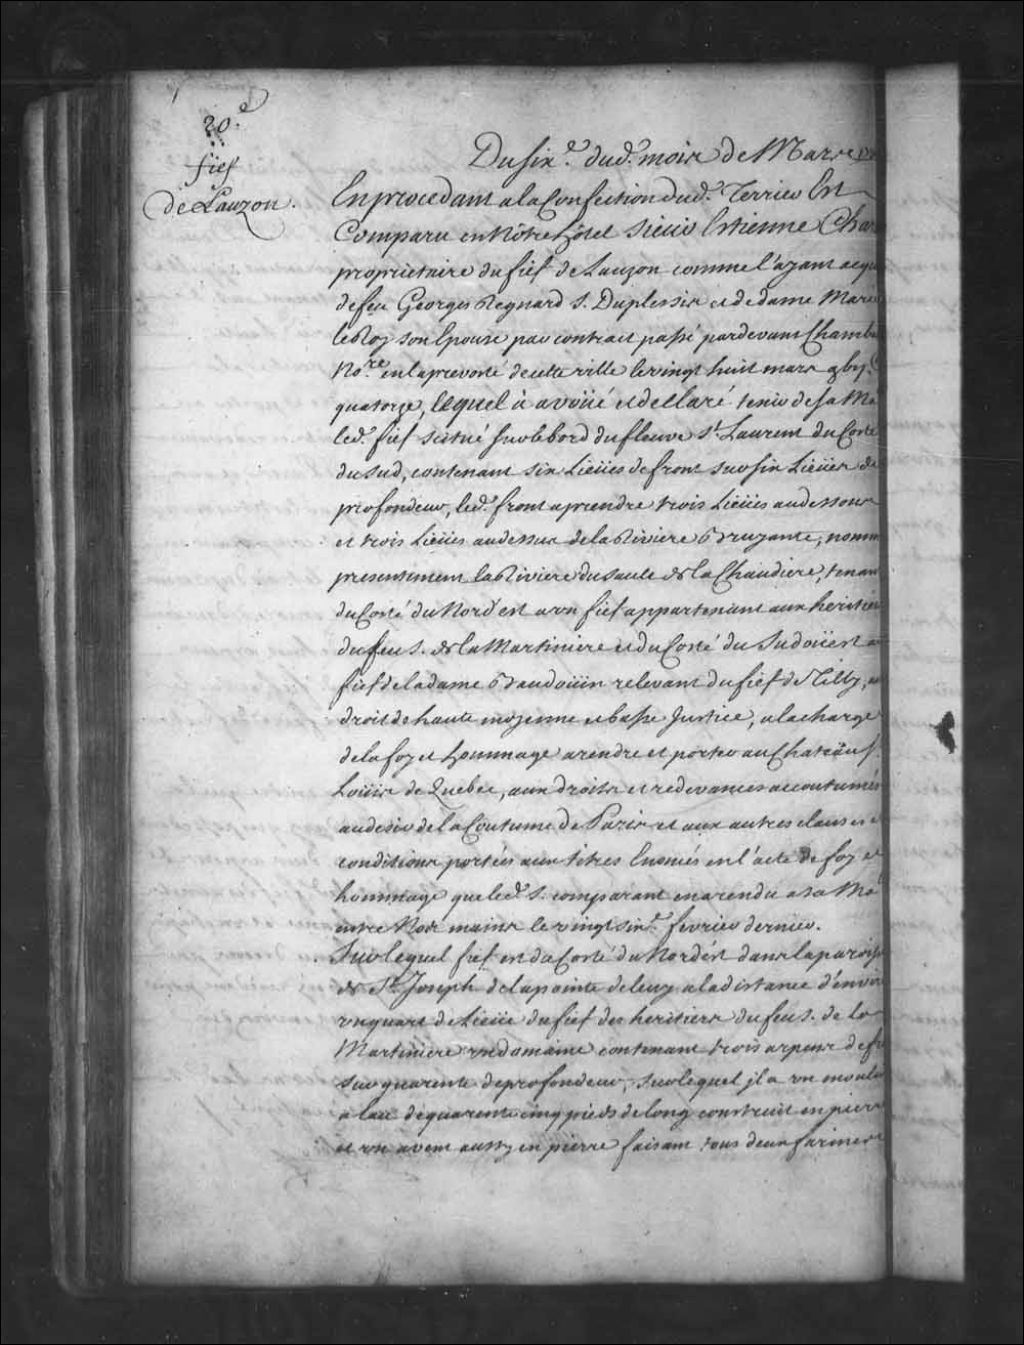 20.e
fief
de Lauzon.
Du six.e dud. mois de Mars
En procedant a la Confection dud. Terrier Est
Comparu en Nôtre hôtel Sieur Estienne Char
proprietaire du fief de Lauzon comme l'ayant acqu
de feu Georges Regnard S. Duplessis et de dame Marie
le Roy son Epouse par contrait passé pardevant Chamba
No.re en la prevosté de cette ville le vingt huit mars
quatorze, lequel a avoüé et declaré tenir de sa Ma
led. fief scitué sur le bord du fleuve St. Laurent du Costé
du Sud, contenant six Lieües de front sur six Lieües de
profondeur, led. front a prendre trois Lieües au dessous
et trois Lieües au dessus de la Riviere Bruyante, nomm
presentement la Riviere du Sault de la Chaudiere, tenant
du Costé du Nord'est a un fief appartenant aux heritiers
du feu S. de la Martiniere et du Costé du Sudoüest a
fief de la dame Baudoüin relevant du fief de Tilly,
droit de haute moyenne et basse Justice, a la charge
de la foy et hommage a rendre et porter au Chateau S.
Loüis de Quebec, aux droits et redevances accoutumés
au desir de la Coutume de Paris et aux autres clauses
conditions portées aux titres Enoncés en l'acte de foy et
hommage que led. S. comparant en a rendu a sa Ma
entre Nos mains le vingt six.e fevrier dernier.
Sur lequel fief est du Costé du Nord'est dans la paroisse
de St. Joseph de la pointe de levy a la distance d'envir
un quart de Lieüe du fief des heritiers du feu S. de la
Martiniere un domaine contenant trois arpens de fr
sur quarente de profondeur, sur lequel il a un moulin
a leau de quarente cinq pieds de long construit en pierre
et un a vent aussy en pierre faisant tous deux farines